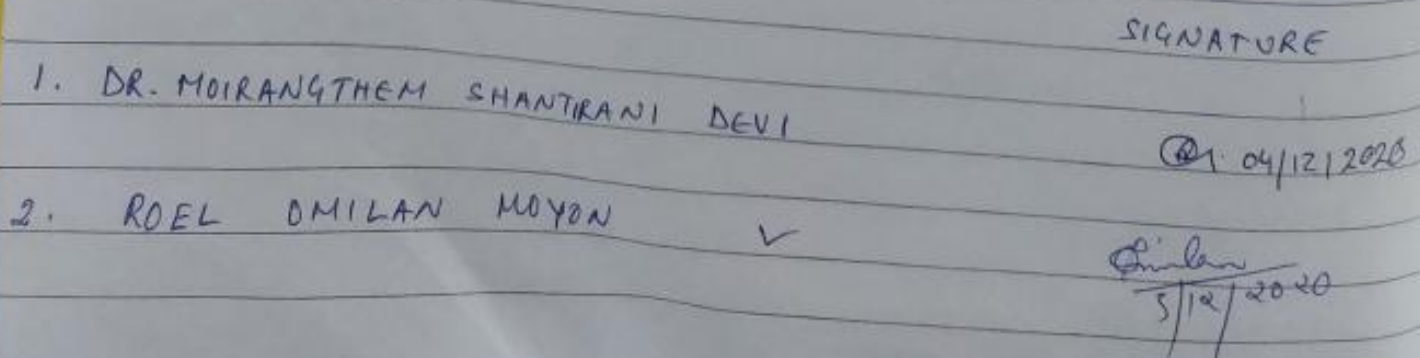 SIGNATURE
1. DR. MOIRANGTHEM SHANTIRANI DEVI
04/12/2020
2. ROEL OMILAN MOYON ✓
Omilan
5/12/2020